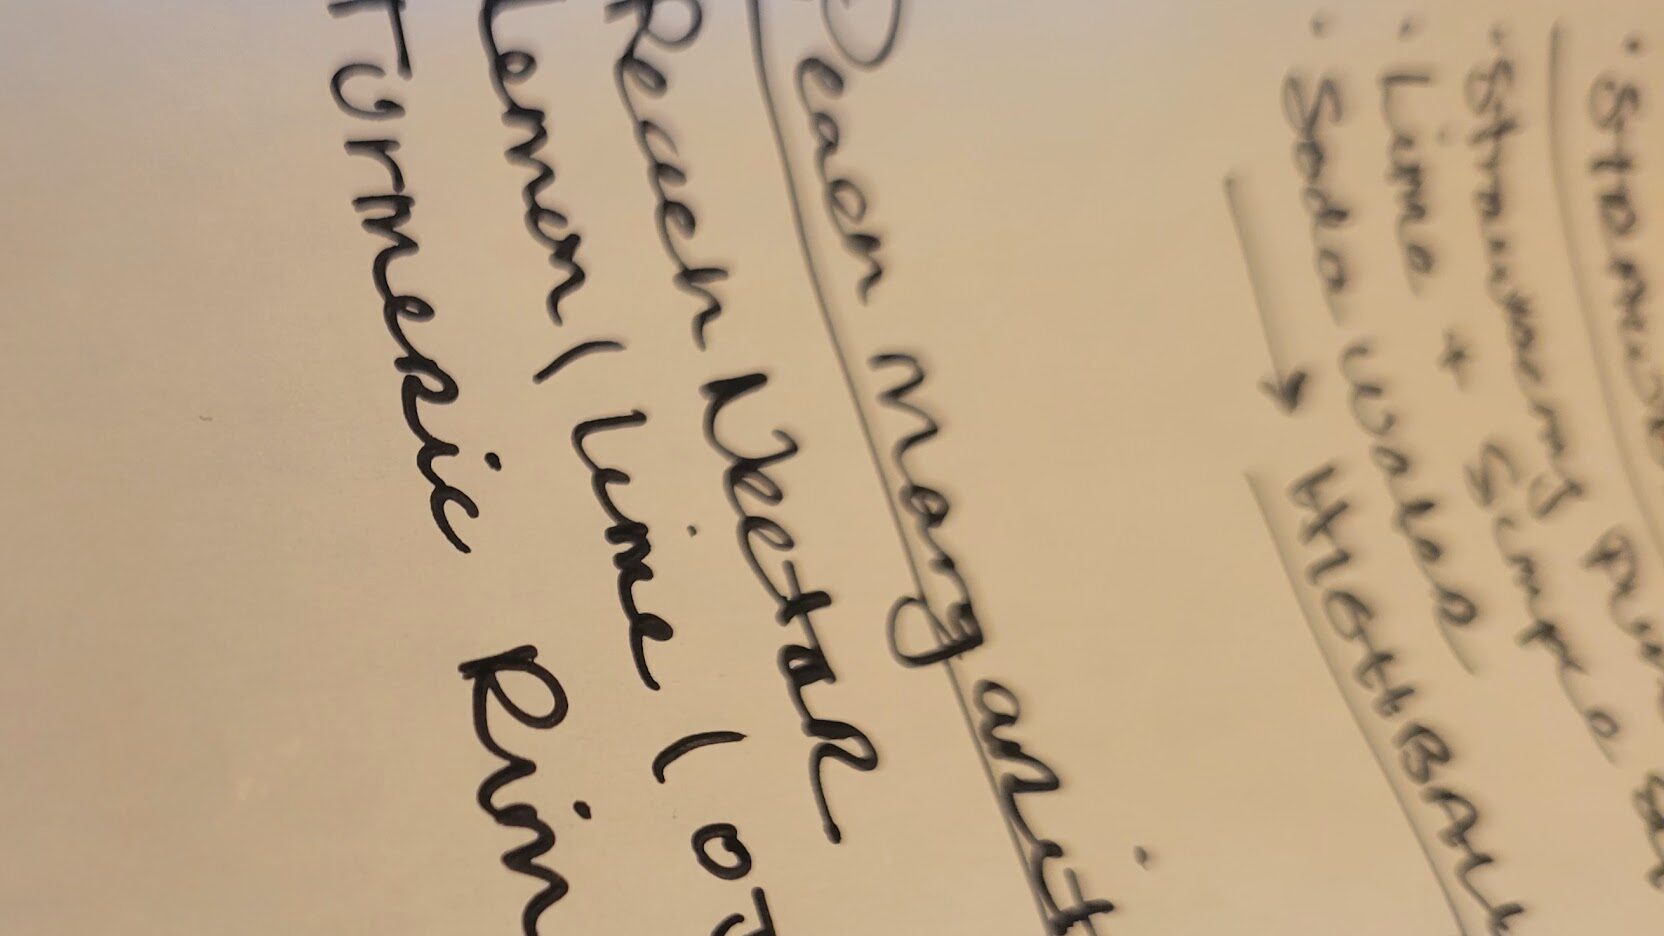 • Strawberry
• Lime + Simple
• Soda Water
→ HIGHBALL
Peach Margarit
Peach Nectar
Lemon / Lime / OJ
Turmeric Rim